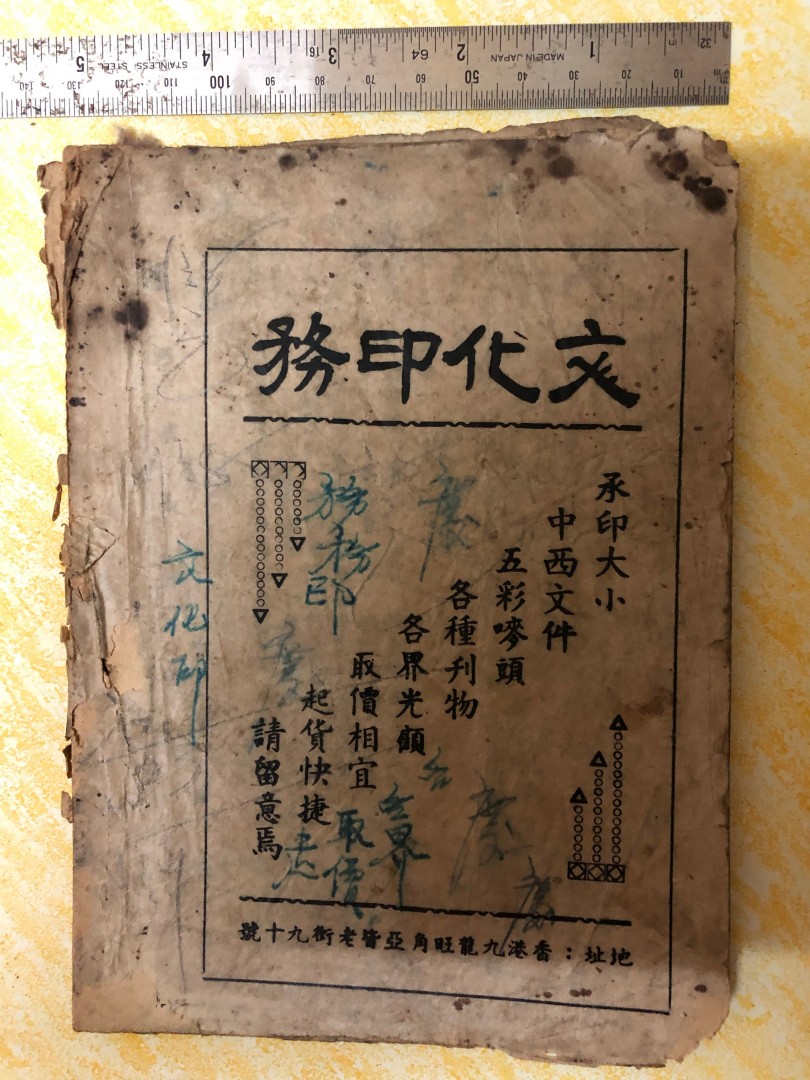 文化印務
承印大小
中西文件
五彩嘜頭
各種刋物
各界光顧
取價相宜
起貨快捷
請留意焉
地址：香港九龍旺角亞皆老街九十號
務務印
文化印
各
各界
取價
慶
慶
慶
STAINLESS STEEL
MADE IN JAPAN
1 2 3 4 5
16 64 32
10 20 30 40 50 60 70 80 90 100 110 120 130 140